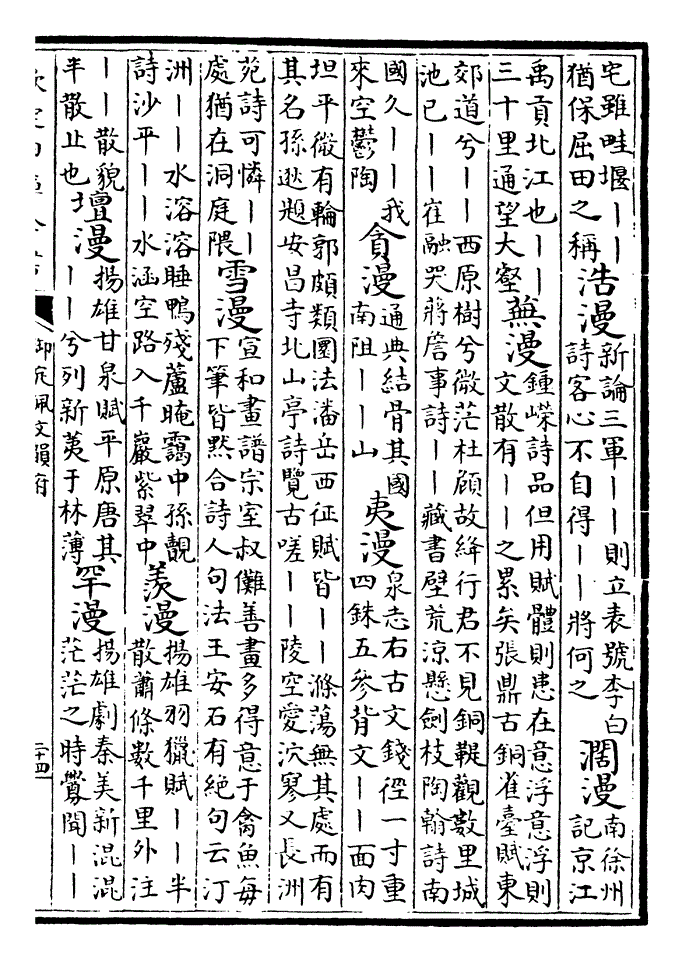 宅雖畦堰｜｜
猶保屈田之稱
浩漫
新論三軍｜｜則立表號李白
詩客心不自得｜｜將何之
濶漫
南徐州
記京江
禹貢北江也｜｜
三十里通望大壑
蕪漫
鍾嶸詩品但用賦體則患在意浮意浮則
文散有｜｜之累矣張鼎古銅雀臺賦東
郊道兮｜｜西原樹兮微茫杜頠故絳行君不見銅鞮觀數里城
池已｜｜崔融哭蔣詹事詩｜｜藏書壁荒涼懸劍枝陶翰詩南
國久｜｜我
來空鬱陶
貪漫
通典結骨其國
南阻｜｜山
夷漫
泉志右古文錢徑一寸重
四銖五參背文｜｜面肉
坦平微有輪郭頗類圜法潘岳西征賦皆｜｜滌蕩無其處而有
其名孫逖題安昌寺北山亭詩覽古嗟｜｜陵空愛泬寥又長洲
苑詩可憐｜｜
處猶在洞庭隈
雪漫
宣和畫譜宗室叔儺善畫多得意于禽魚每
下筆皆黙合詩人句法王安石有絶句云汀
洲｜｜水溶溶睡鴨殘蘆晻靄中孫覿
詩沙平｜｜水涵空路入千巖紫翠中
羨漫
揚雄羽獵賦｜｜半
散蕭條數千里外注
｜｜散貌
半散止也
壇漫
揚雄甘泉賦平原唐其
｜｜兮列新荑于林薄
罕漫
揚雄劇秦美新混混
茫茫之時舋聞｜｜
御定佩文韻府
二十四